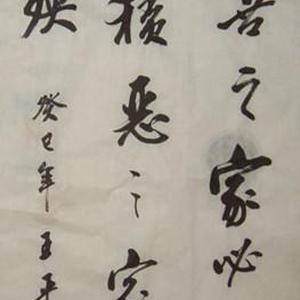 善之家必
積惡之家
殃
癸巳年王平